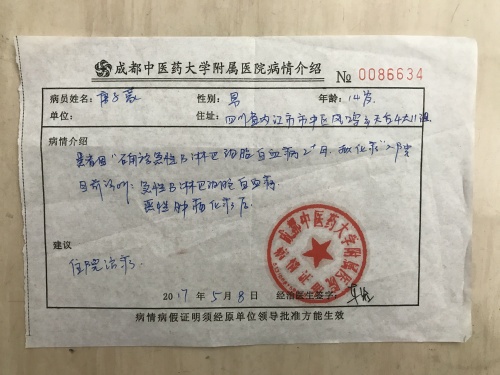 成都中医药大学附属医院病情介绍 No 0086634
病员姓名: 性别: 男 年龄: 14岁
单位: 住址: 四川省内江市市中区
病情介绍
患者因"确诊急性B淋巴细胞白血病2+月,拟化疗"入院
目前诊断: 急性B淋巴细胞白血病
恶性肿瘤化疗后
建议
住院治疗
成都中医药大学附属医院
2017年5月8日 经治医生签字:
病情病假证明须经原单位领导批准方能生效